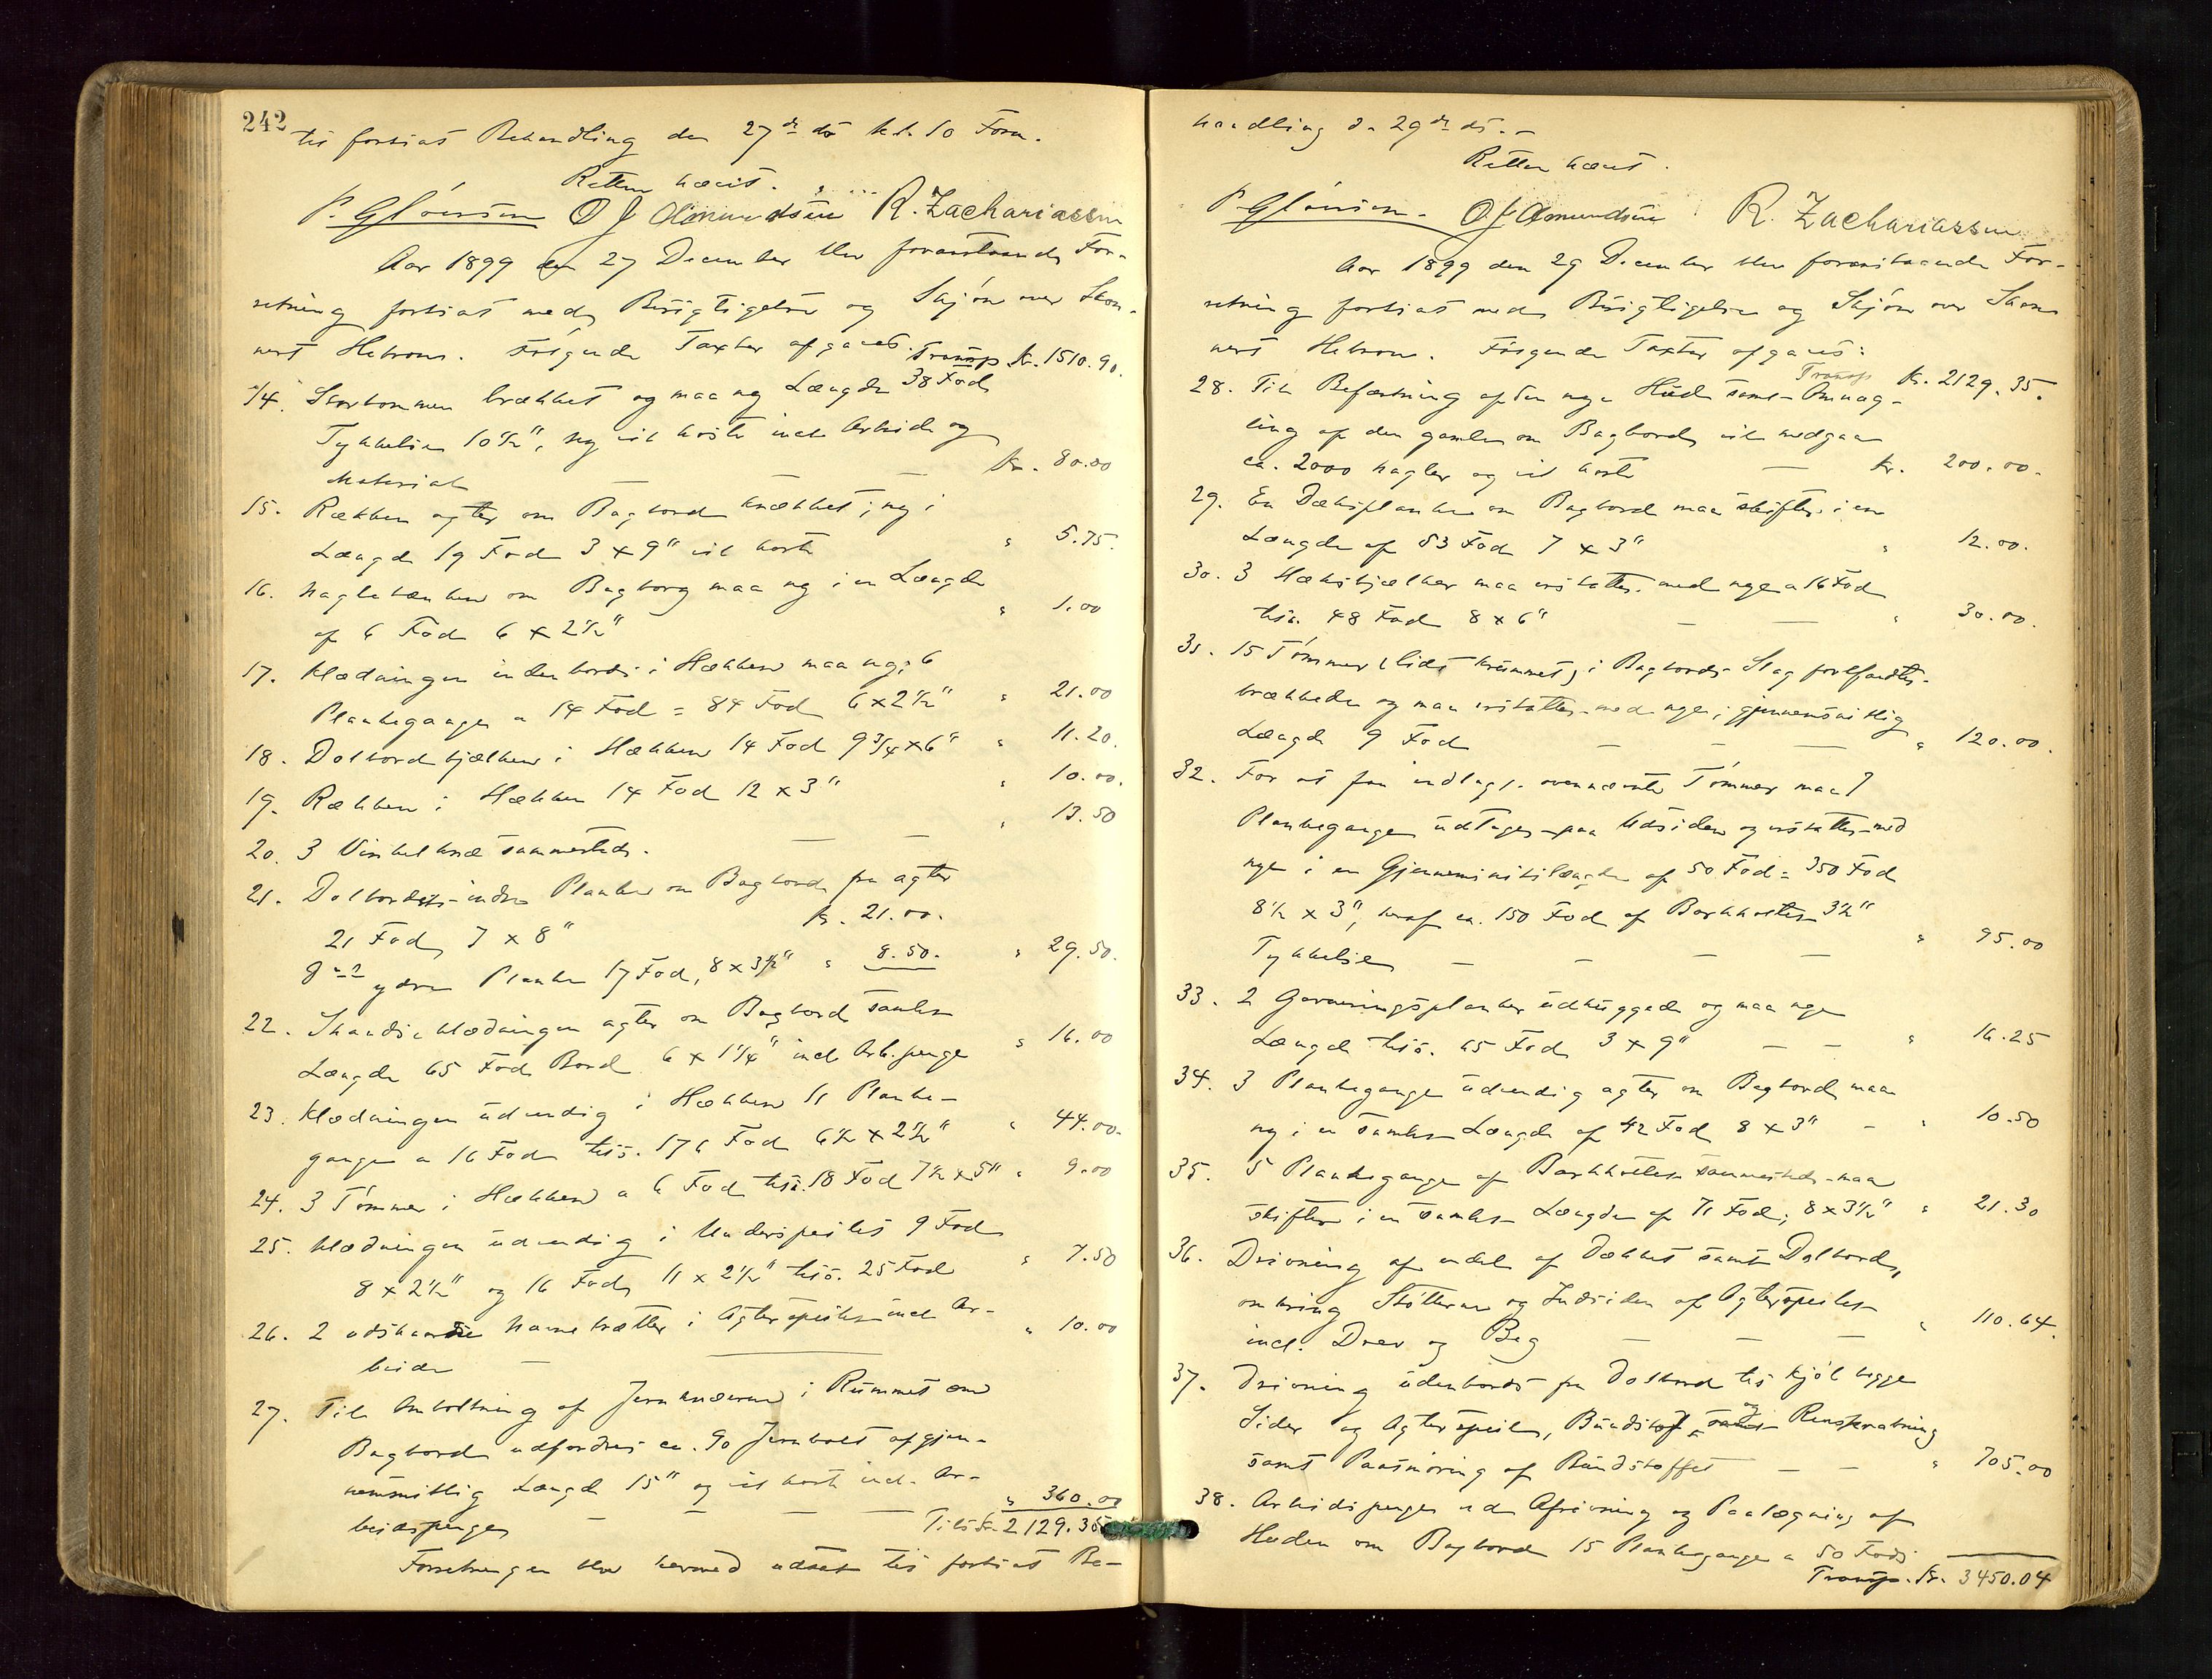 242
til fortsat Behandling den 27de ds kl. 10 Form.
Retten hævet.
O J Amundsen R. Zachariassen
Aar 1899 den 27 December blev foranstaaende For-
retning fortsat med Besigtigelse og Skjøn over Skon-
nert Hebron. Følgende Taxter afgaves. Transp Kr. 1510.90.
14. Storbommen brækket og maa ny Længde 38 Fod
Tykkelse 10 1/2", ny vil koste incl. Arbeide og
Materiale — — Kr. 80.00
15. Rækken agter om Bagbord knækket; ny i
Længde 19 Fod 3 x 9" vil koste " 5.75.
16. Naglebænken om Bagborg maa ny i en Længde
af 6 Fod 6 x 2 1/2" " 1.00
17. Klædningen indenbords i Hækken maa ny; 6
Plankegange a 14 Fod = 84 Fod 6 x 2 1/2" " 21.00
18. Dolbordbjælken i Hækken 14 Fod 9 3/4 x 6" " 11.20.
19. Rækken i Hækken 14 Fod 12 x 3" " 10.00.
20. 3 Vinkelknæ sammesteds. — — " 13.50
21. Dolbordets indre Planke om Bagbord fra agter
21 Fod, 7 x 8" Kr. 21.00.
do ydre Planke 17 Fod, 8 x 3 1/2" " 8.50. " 29.50.
22. Skandseklædningen agter om Bagbord samlet
Længde 65 Fod Bord 6 x 1 1/4" incl Arb.penge " 16.00
23. Klædningen udvendig i Hækken 11 Planke-
gange a 16 Fod tils. 176 Fod 6 1/2 x 2 1/2" " 44.00.
24. 3 Tømmer i Hækken a 6 Fod tils. 18 Fod 7 1/2 x 5" " 9.00
25. Klædningen udvendig i Underspeilet 9 Fod
8 x 2 1/2" og 16 Fod, 11 x 2 1/2" tils. 25 Fod " 7.50
26. 2 udskaarne Navnebrætter i Agterspeilet incl Ar-
beide — " 10.00
27. Til Omboltning af Jernknæerne i Rummet om
Bagbord udfordres ca. 90 Jernbolt af gjen-
nemsnitlig Længde 15" og vil koste incl. Ar-
beidspenge — — — " 360.00
Tils Kr 2129.35
Forretningen blev hermed udsat til fortsat Be-
handling den 29de ds. —
Retten hævet.
O J Amundsen R. Zachariassen
Aar 1899 den 29 December blev foranstaaende For-
retning fortsat med Besigtigelse og Skjøn over Skon
nert Hebron. Følgende Taxter afgaves:
Transp Kr. 2129.35.
28. Til Befæstning af den nye Hud samt Omnag-
ling af den gamle om Bagbord vil medgaa
ca. 2000 Nagler og vil koste — Kr. 200.00.
29. En Dæksplanke om Bagbord maa skiftes i en
Længde af 53 Fod 7 x 3" " 12.00.
30. 3 Hæksbjælker maa erstattes med nye a 16 Fod
tils. 48 Fod 8 x 6" — — " 30.00.
31. 15 Tømmer (lidt krummet) i Bagbords Slag forefandtes
brækkede og maa erstattes med nye; gjennemsnitlig
Længde 9 Fod — — — " 120.00.
32. For at faa indlagt ovennævnte Tømmer maa 7
Plankegange udtages paa Udsiden og erstattes med
nye i en Gjennemsnitslængde af 50 Fod = 350 Fod
8 1/2 x 3", hvoraf ca. 150 Fod af Barkholtets 3 1/2"
Tykkelse — — — — " 95.00
33. 2 Garneringsplanker udhuggede og maa nye
Længde tils. 65 Fod 3 x 9" — — " 16.25
34. 3 Plankegange udvendig agter om Bagbord maa
ny i en samlet Længde af 42 Fod 8 x 3" — " 10.50
35. 5 Plankegange af Barkholtet sammesteds maa
skiftes i en samlet Længde af 71 Fod, 8 x 3 1/2" " 21.30
36. Drivning af endel af Dækket samt Dolbord,
omkring Støtterne og Indsiden af Agterspeilet
incl. Drev og Beg — — — " 110.64.
37. Drivning udenbords fra Dolbord til Kjøl begge
Sider og Agterspeilet, Bundstof, og Renskrabning
samt Paasmøring af Bundstoffet — — " 705.00
38. Arbeidspenge ved Afrivning og Paalægning af
Huden om Bagbord 15 Plankegange a 50 Fods
Transp. Kr. 3450.04